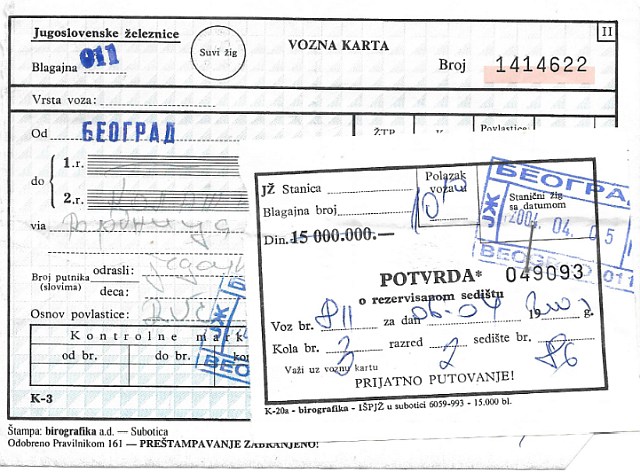 Jugoslovenske železnice
Blagajna 011
Suvi žig
VOZNA KARTA
II
Broj 1414622
Vrsta voza:
Od БЕОГРАД
do
1.r.
2.r.
via
Broj putnika
(slovima)
odrasli:
deca:
Osnov povlastice:
Kontrolne mark
od br.
do br.
K-3
Štampa: birografika a.d. — Subotica
Odobreno Pravilnikom 161 — PREŠTAMPAVANJE ZABRANJENO!
JŽ Stanica
Polazak
voza u
Blagajna broj
10
Din. 15 000.000.—
БЕОГРА
ЈЖ
Stanični žig
sa datumom
2004. 04. 05
БЕОГРАД 011
POTVRDA* 049093
o rezervisanom sedištu
Voz br. 811 za dan 06-04 19 g.
Kola br. 3 razred 2 sedište br. 86
Važi uz voznu kartu
PRIJATNO PUTOVANJE!
K-20a - birografika - IŠPJŽ u subotici 6059-993 - 15.000 bl.